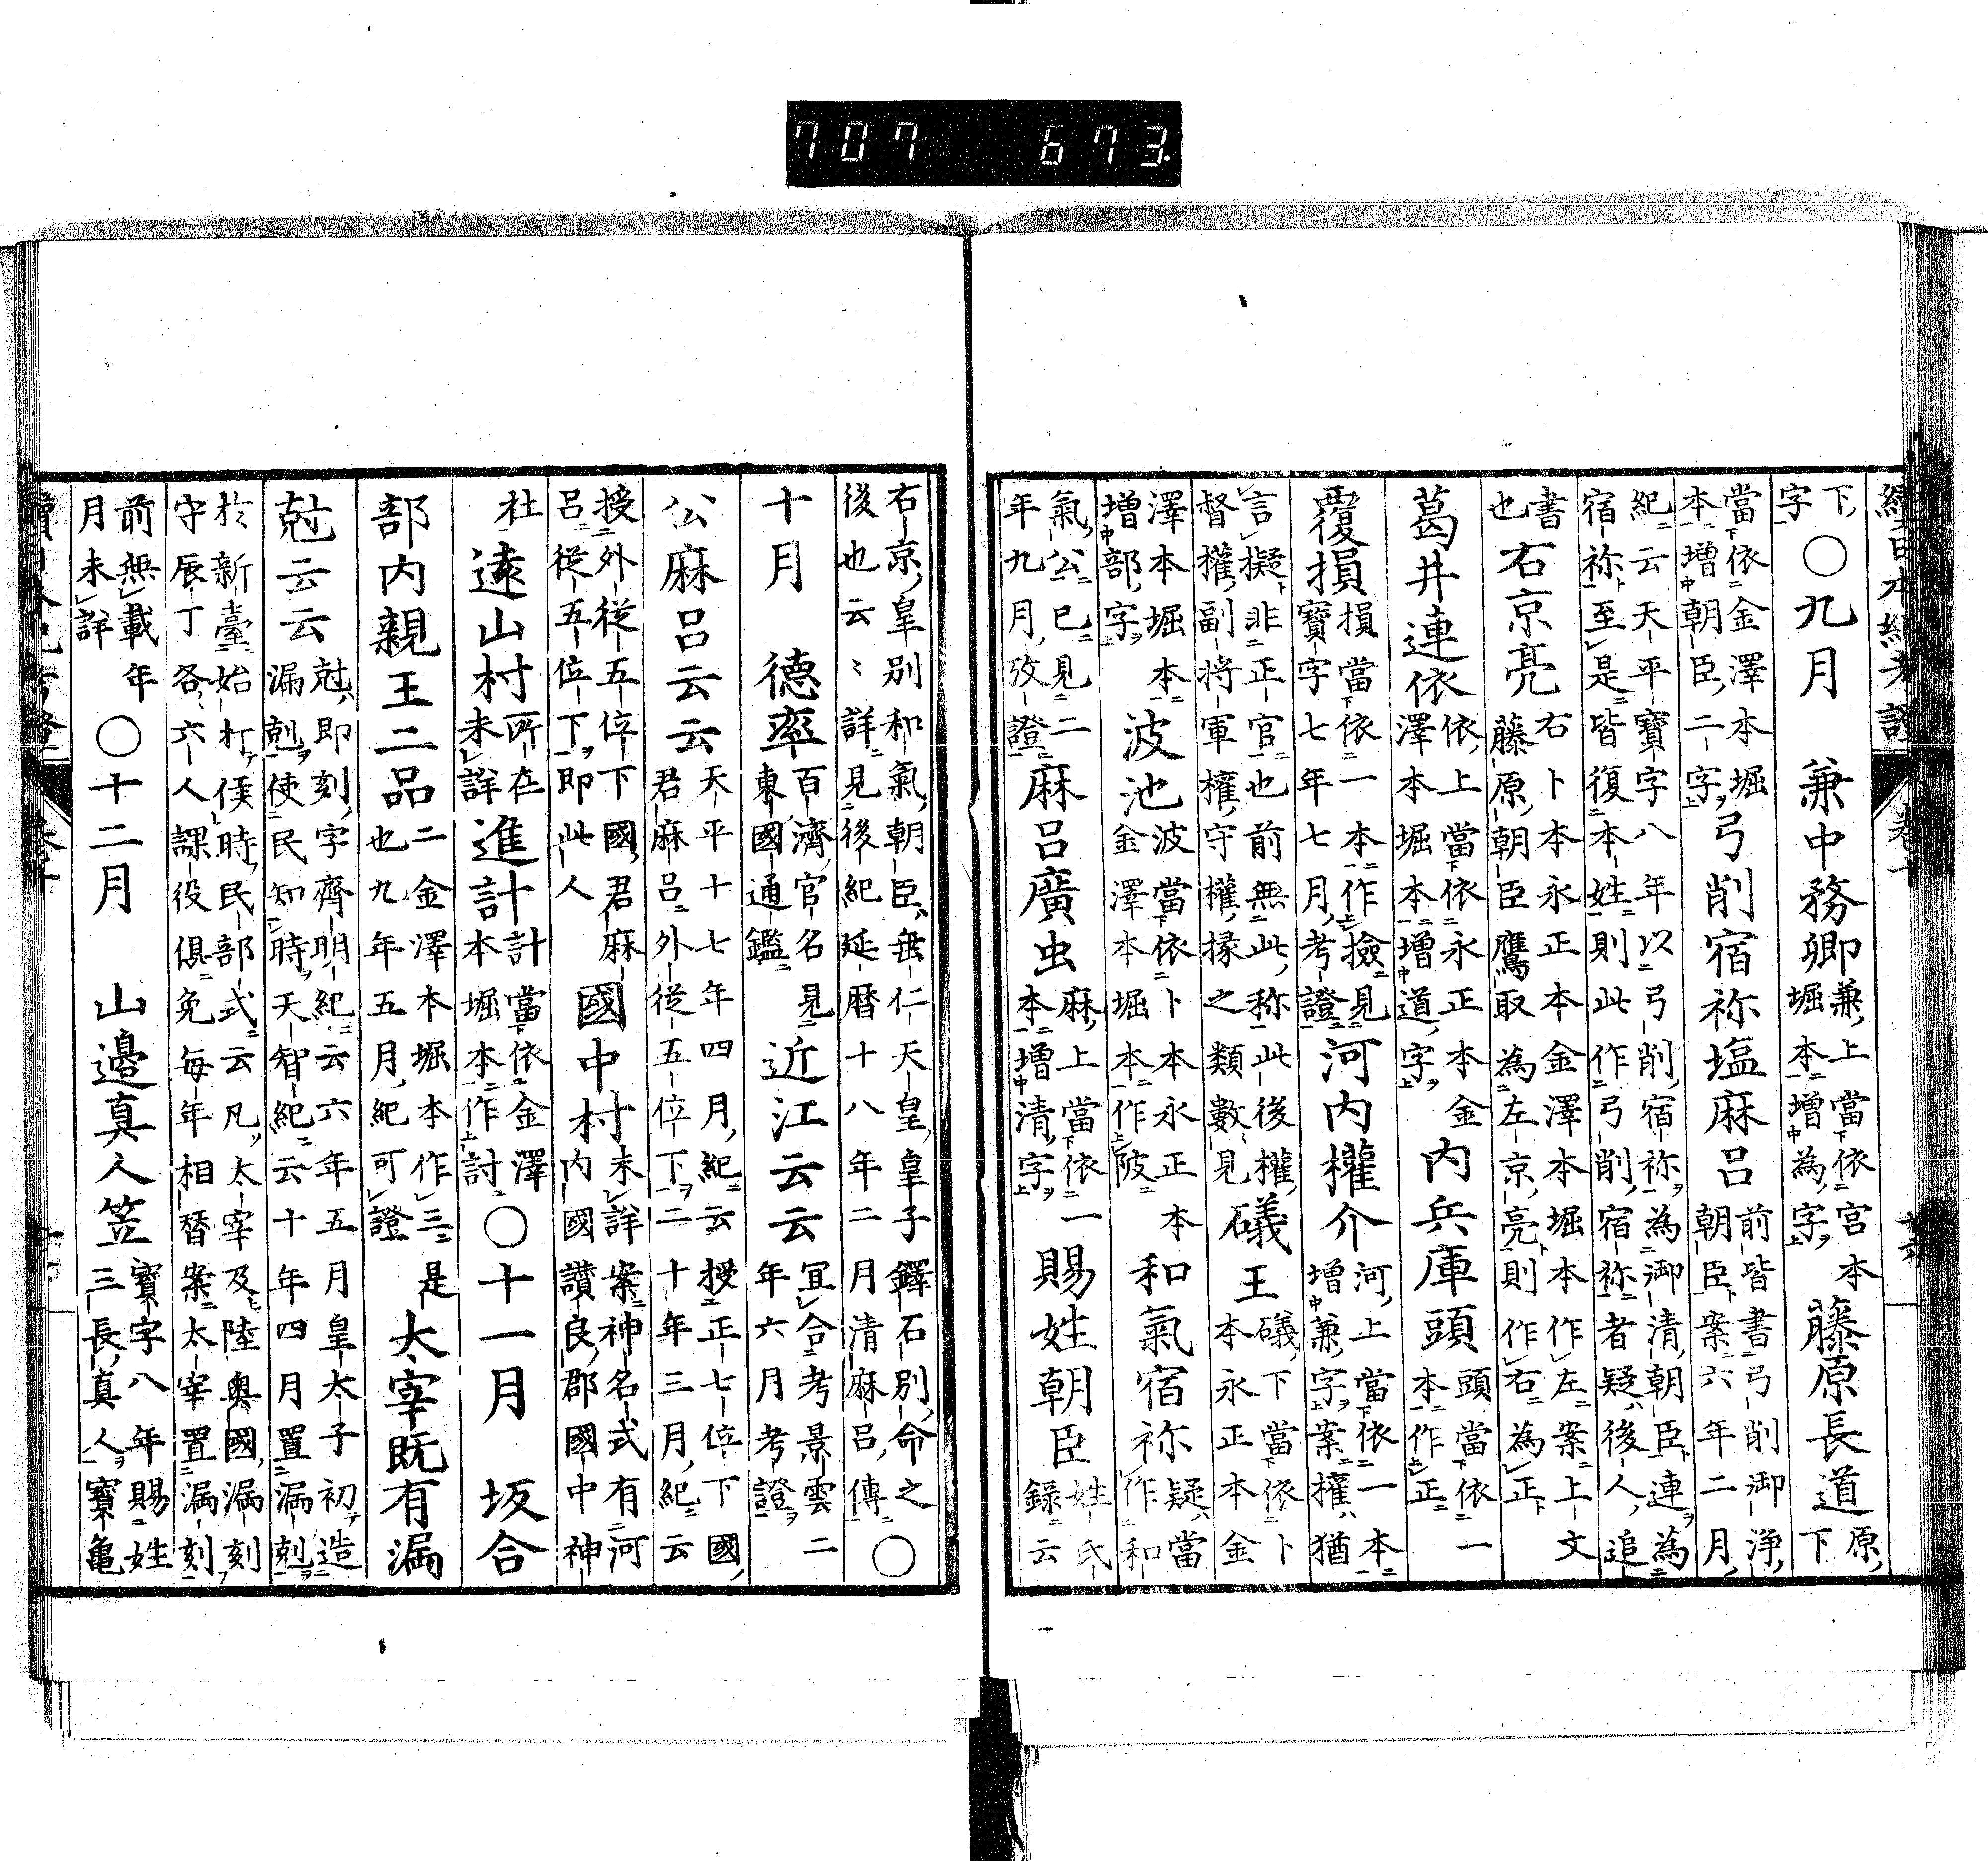 707 673
續日本紀考證 卷十
下、
字
○九月 兼中務卿
兼、上當依宮本
堀本増為字
藤原長道
原、
下
當依金澤本堀
本増朝臣二字
弓削宿祢塩麻呂
前皆書弓削御浄、
朝臣案六年二月、
紀云天平寶字八年以弓削宿祢為御清朝臣連為
宿祢至是皆復本姓則此作弓削宿祢者疑後人追
書
也
右京亮
右卜本永正本金澤本堀本作左案上文
藤原朝臣鷹取為左京亮則作右為正
葛井連依
依、上當依永正本金
澤本堀本増道字
内兵庫頭
頭當依一
本作正
覆損
損當依一本作撿見
寶字七年七月考證
河内權介
河、上當依一本
増兼字案權猶
言擬非正官也前無此、称此後權、
督權、副將軍權、守權、掾之類數見
礒王
礒、下當依卜
本永正本金
澤本堀本
増部字
波池
波當依卜本永正本
金澤本堀本作陂
和氣宿祢
疑當
作和
氣公已見二
年九月攷證
麻呂廣虫
麻、上當依一
本増清字
賜姓朝臣
姓氏
録云
右京皇別和氣朝臣垂仁天皇皇子鐸石別命之
後也云〻詳見後紀延暦十八年二月清麻呂傳
○
十月 德率
百濟官名見
東國通鑑
近江云云
宜合考景雲二
年六月考證
公麻呂云云
天平十七年四月紀云授正七位下國
君麻呂外從五位下二十年三月紀云
授外從五位下國君麻
呂從五位下即此人
國中村
未詳案神名式有河
内國讃良郡國中神
社
遠山村
所在
未詳
進計
計當依金澤
本堀本作討
○十一月 坂合
部内親王二品
二金澤本堀本作三是
也九年五月紀可證
大宰既有漏
尅云云
尅即刻字齊明紀云六年五月皇太子初造
漏剋使民知時天智紀云十年四月置漏剋
於新臺始打候時民部式云凡太宰及陸奥國漏刻
守辰丁各六人課役倶免毎年相替案太宰置漏刻
前無載年
月未詳
○十二月 山邊真人笠
寶字八年賜姓
三長真人寶亀